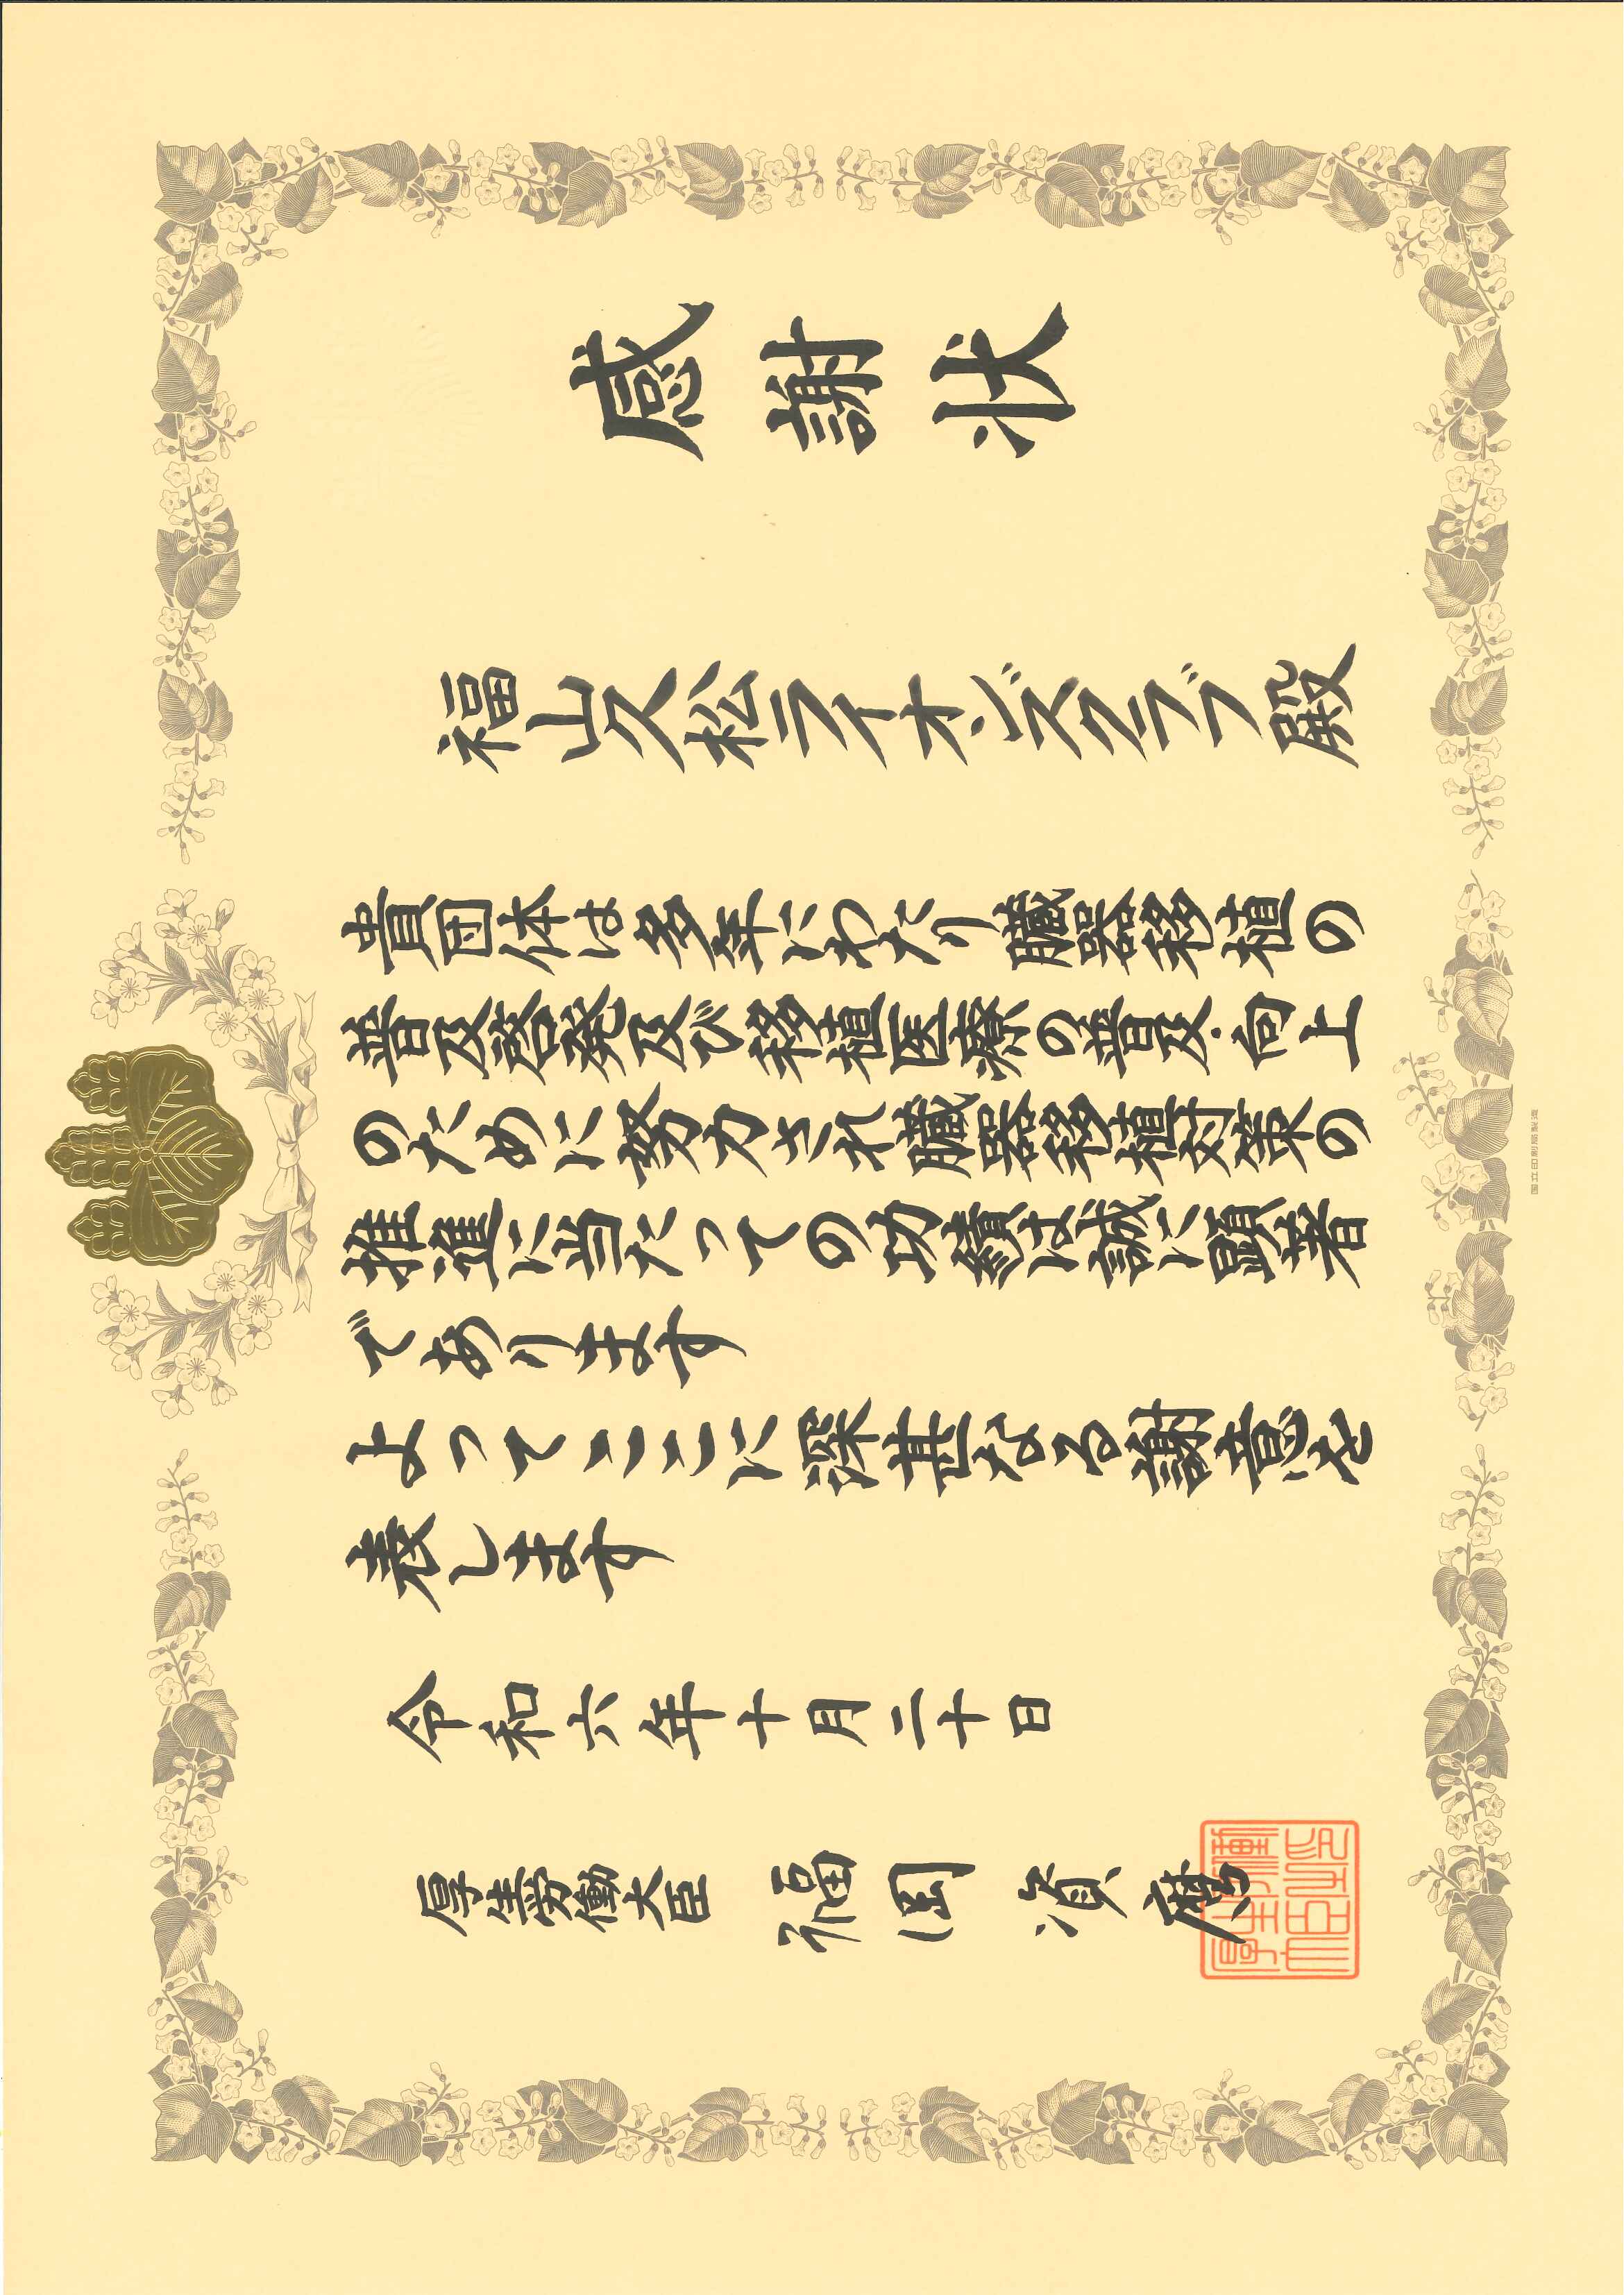 感謝状
福山久松ライオンズクラブ殿
貴団体は多年にわたり臓器移植の
普及啓発及び移植医療の普及・向上
のために努力され臓器移植対策の
推進に当たっての功績は誠に顕著
であります
よってここに深甚なる謝意を
表します
令和六年十月二十日
厚生労働大臣 福岡資麿
厚生労働大臣之印
国立印刷局製造